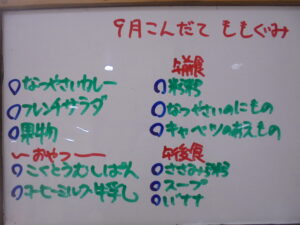 9月こんだて ももぐみ
○なつやさいカレー
○フレンチサラダ
○果物
～おやつ～
○こくとうむしぱん
○コーヒーミルク牛乳
午前食
○軟粥
○なつやさいのにもの
○キャベツのあえもの
午後食
○ささみ粥
○スープ
○バナナ